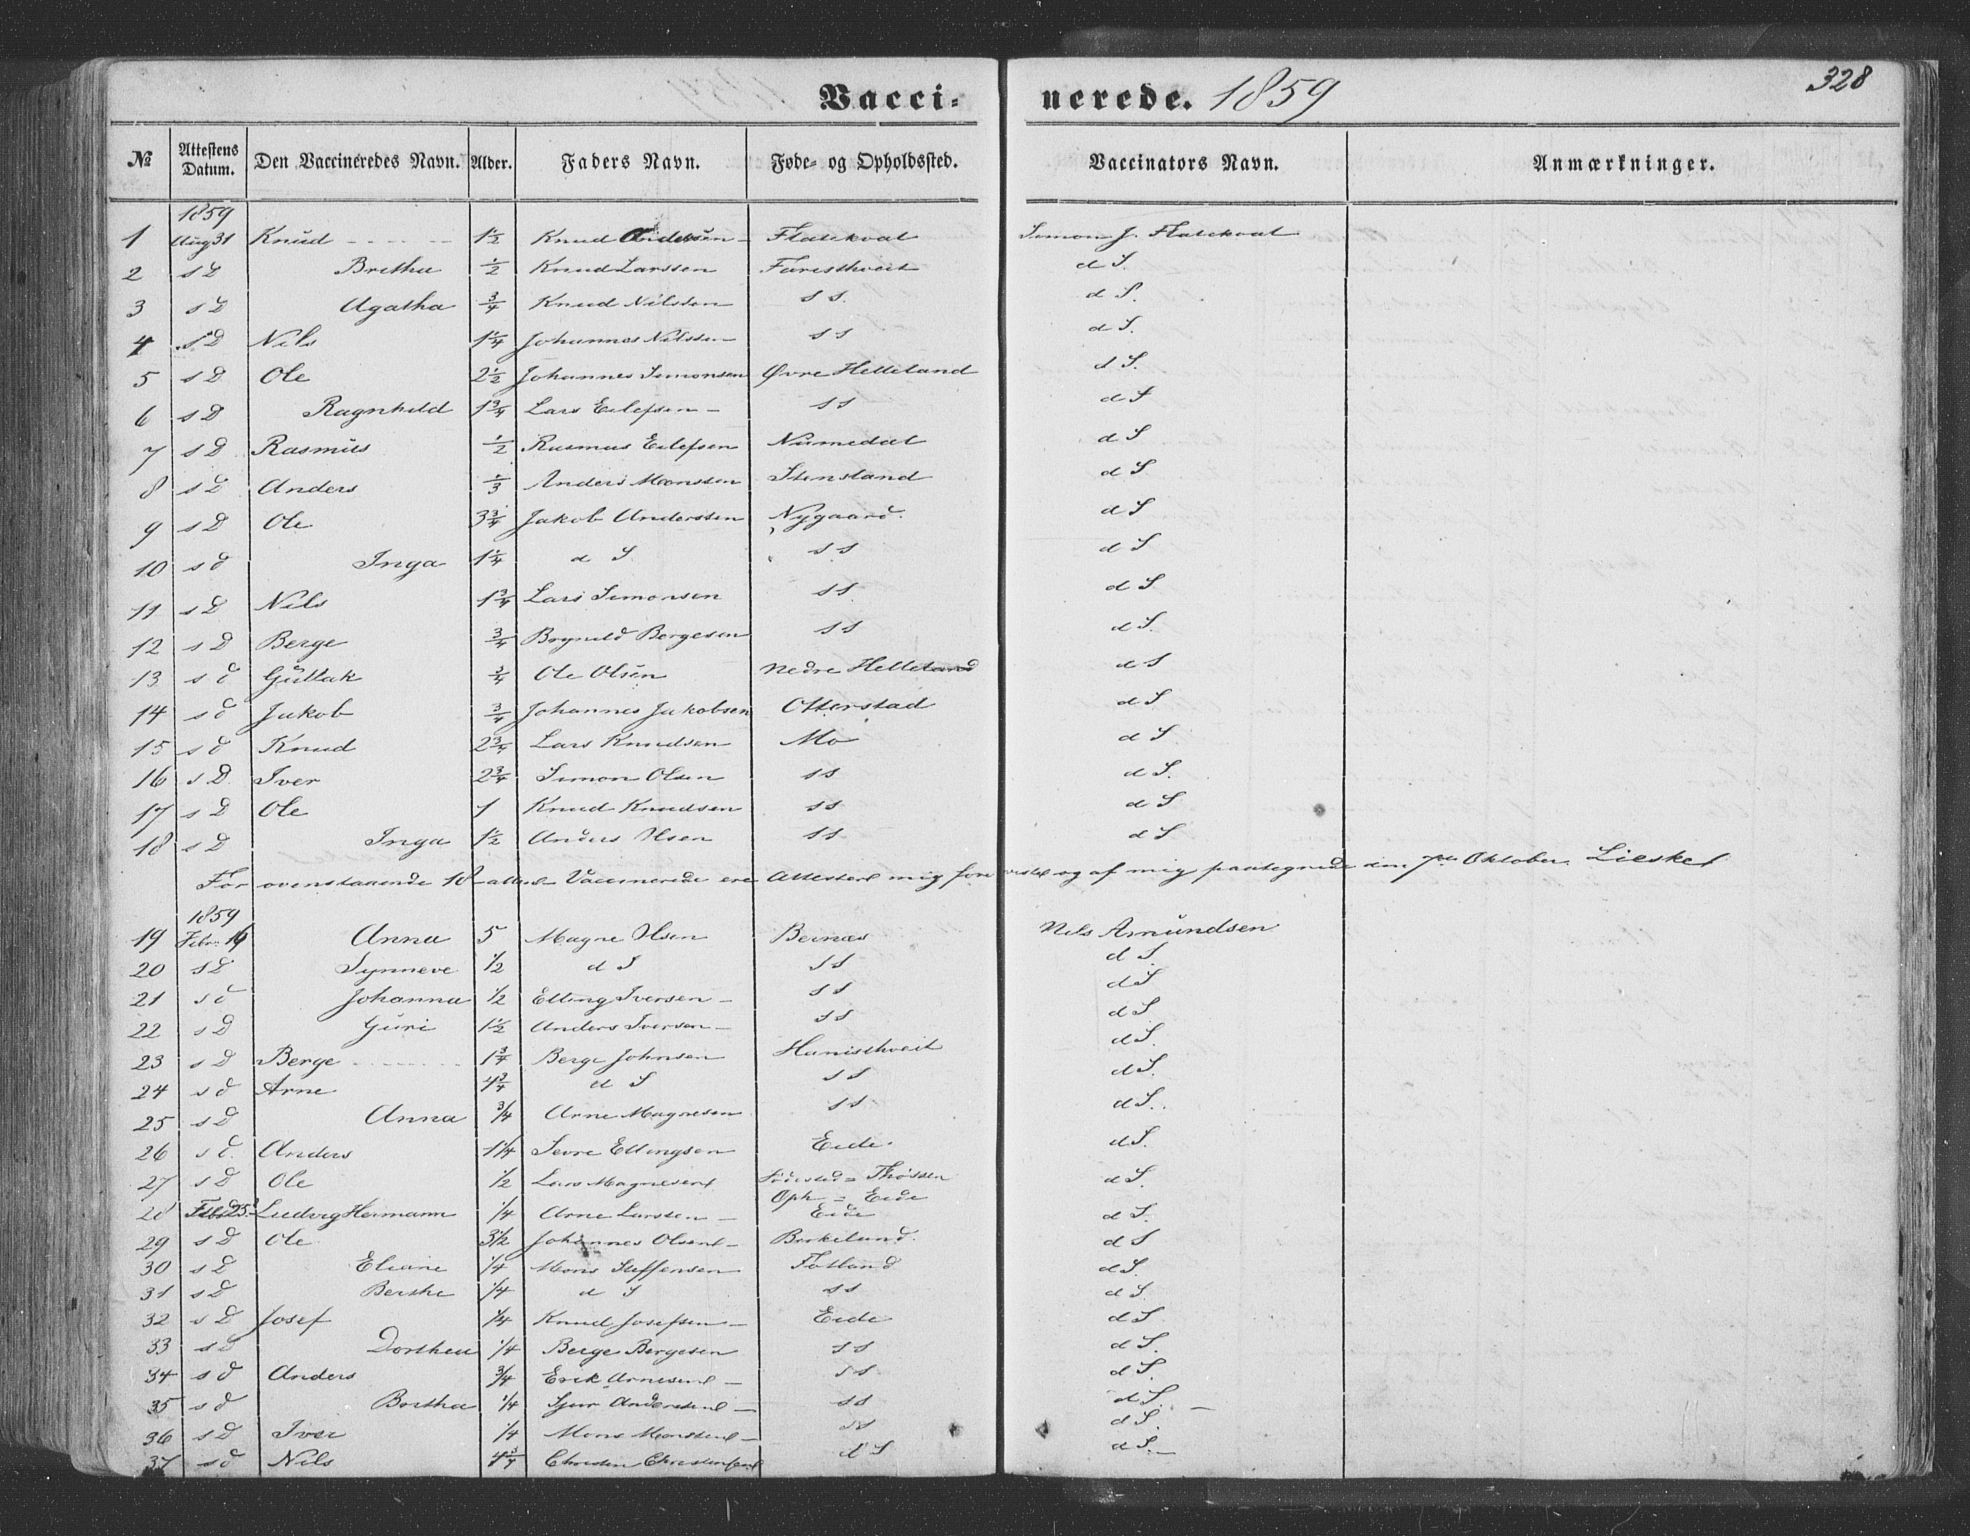 Vacci- nerede. 1859 328
№ Attestens Datum. Den Vaccineredes Navn. Alder. Faders Navn. Føde- og Opholdssted. Vaccinators Navn. Anmærkninger.
1859
1 Aug 31 Knud 1 1/2 Knud Andersen Flatekval Simon J. Flatekval
2 s D Bretha 1/2 Knud Larssen Faresthveit d S.
3 s D Agatha 3/4 Knud Nilssen s s. d S.
4 s D Nils 1 1/4 Johannes Nilssen s s d S.
5 s D Ole 2 1/2 Johannes Simonsen Øvre Helleland d S.
6 s D Ragnhild 1 3/4 Lars Eilefsen s s d S
7 s D Rasmus 1/2 Rasmus Eilefsen Numedal d S
8 s D Anders 1/3 Anders Monssen Stensland d S
9 s D Ole 3 3/4 Jakob Anderssen Nygaard. d S
10 s d Inga 1 1/4 d S s s d S
11 s D Nils 1 3/4 Lars Simonsen s s d S.
12 s D Berge 3/4 Brynild Bergesen s s d S.
13 s d Gullak 3/4 Ole Olsen Nedre Helleland d S
14 s d Jakob 3/4 Johannes Jakobsen Otterstad d S
15 s d Knud 2 3/4 Lars Knudsen Mo d S
16 s D Iver 2 3/4 Simon Olsen s s d S.
17 s D Ole 1 Knud Knudsen s s d S
18 s D Inga 1 1/2 Anders Olsen s s d S
For ovenstaaende 18 Vaccinerede ere Attester mig forevist og af mig paategnede den 7de Oktober. Lieske
1859
19 Febr. 16 Anna 5 Magne Olsen Bernæs Nils Amundsen
20 s D Synneve 1/2 d S s s d S.
21 s d Johanna 1/2 Elling Iversen s s d S
22 s D Guri 1 1/2 Anders Iversen s s d S.
23 s D Berge 1 3/4 Berge Johnsen Hanisthveit d S.
24 s d Arne 4 3/4 d S s s d S.
25 s D Anna 3/4 Arne Magnesen s s d S.
26 s d. Anders 1 1/4 Sevre Ellingsen Eide. d S.
27 s D Ole 1/2 Lars Magnesen Fødested = Thössen d S.
Oph = Eide
28 Febr 25. Ludvig Hermann 1/4 Arne Larssen Eide d S.
29 s D Ole 3 1/2 Johannes Olsen Birkeland. d S
30 s D Eliane 1/4 Mons Steffensen Fotland d S.
31 s D Berthe 1/4 d S s s d S.
32 s D Josef 1/4 Knud Josefsen Eide d S
33 s D Dorthea 1/4 Berge Bergesen s s d S.
34 s d Anders 3/4 Erik Arnesen s s d S.
35 s d Bertha 1/4 Sjur Andersen s s d S.
36 s D Iver 1/4 Mons Monssen s s d S.
37 s d Nils 4 3/4 Christen Christensen d S d S.